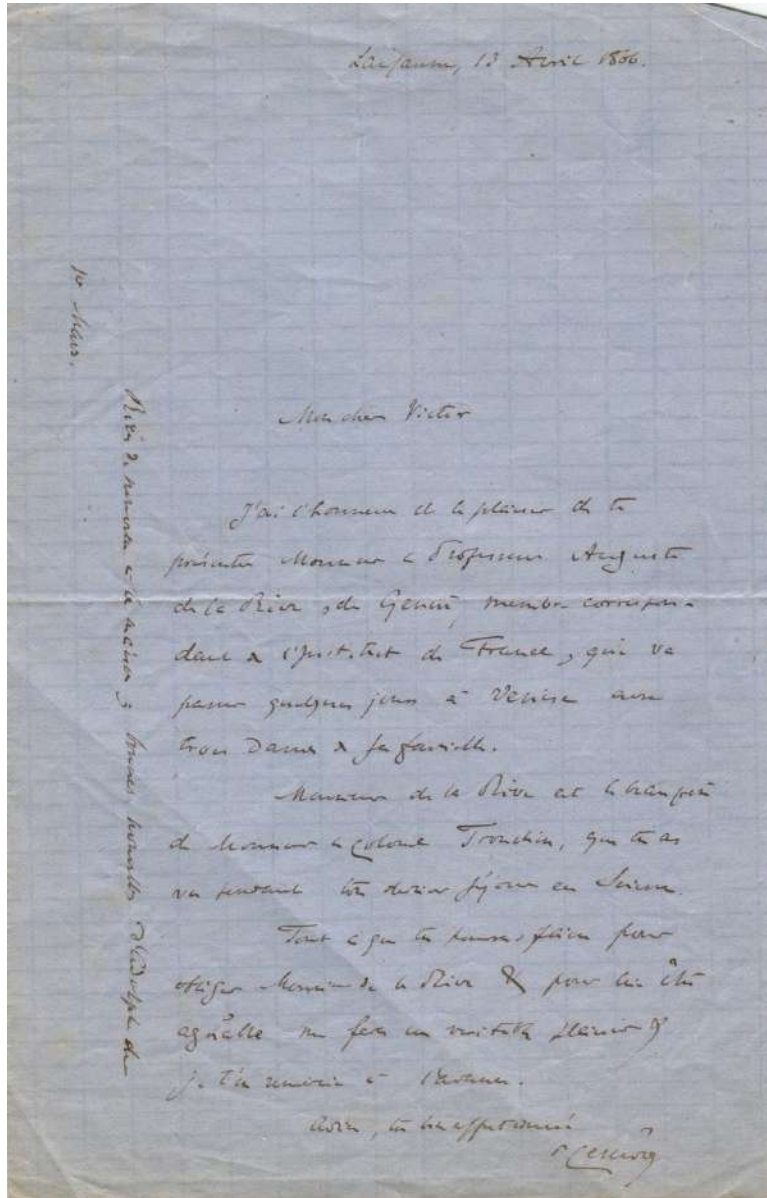 Lausanne, 13 Avril 1866.
Mon cher Victor
J'ai l'honneur & le plaisir de te
présenter Monsieur le Professeur Auguste
de la Rive, de Genève, membre correspon-
dant de l'Institut de France, qui va
passer quelques jours à Venise avec
trois Dames de sa famille.
Monsieur de la Rive est le beau frère
de Monsieur le Colonel Tronchin, que tu as
vu pendant ton dernier séjour en Suisse.
Tout ce que tu pourras faire pour
obliger Monsieur de la Rive & pour lui être
agréable me fera un véritable plaisir &
je t'en remercie à l'avance.
Adieu, ton bien affectionné
Rien de nouveau à la maison; bonnes nouvelles d'Adolphe du
10 Mars.